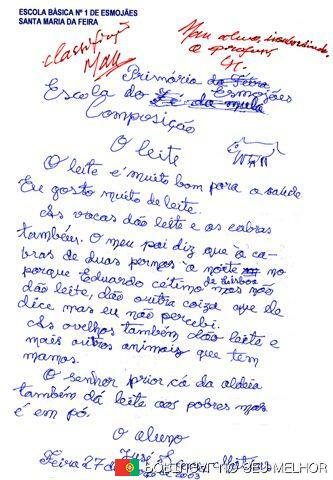 ESCOLA BÁSICA Nº 1 DE ESMOJÃES
SANTA MARIA DA FEIRA
classificação
Mau
Mau aluno,
o profes
Primária da Feira
Escola do Sé da mula Esmojães
Composição
O leite
O leite é muito bom para a saúde
Eu gosto muito de leite.
As vacas dão leite e as cabras
também. O meu pai diz que à ca-
bras de duas pernas à noite no
porque Eduardo cétimo de Lisboa mas não
dão leite, dão outra coiza que ele
dice mas eu não percebi.
As ovelhas também dão leite e
mais outros animais que tem
mamas.
O senhor prior cá da aldeia
também dá leite aos pobres mas
é em pó.
O aluno
José
Feira 27 de 2003
PORTUGAL NO SEU MELHOR